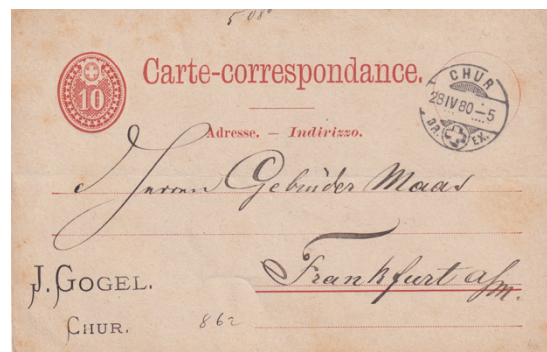 5 08
10
Carte-correspondance.
CHUR
28 IV 80 — 5
BR. EX.
Adresse. — Indirizzo.
Herren Gebrüder Maas
Frankfurt a/m.
J. GOGEL.
CHUR.
862